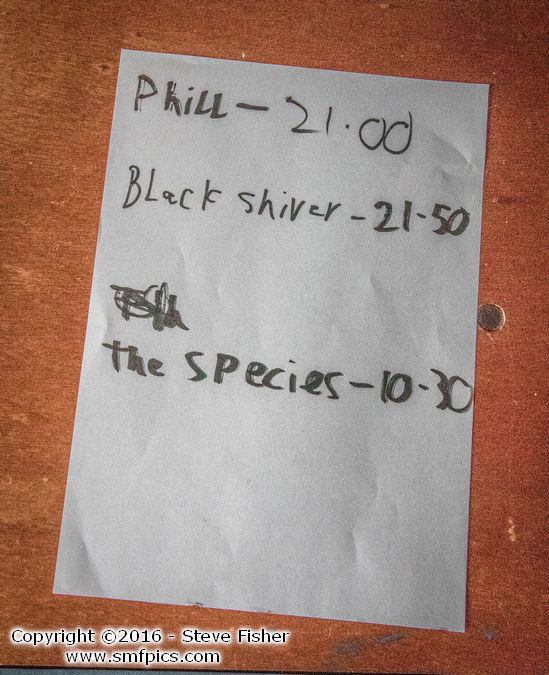 Phill - 21.00
Black shiver - 21-50
the species - 10-30
Copyright ©2016 - Steve Fisher
www.smfpics.com